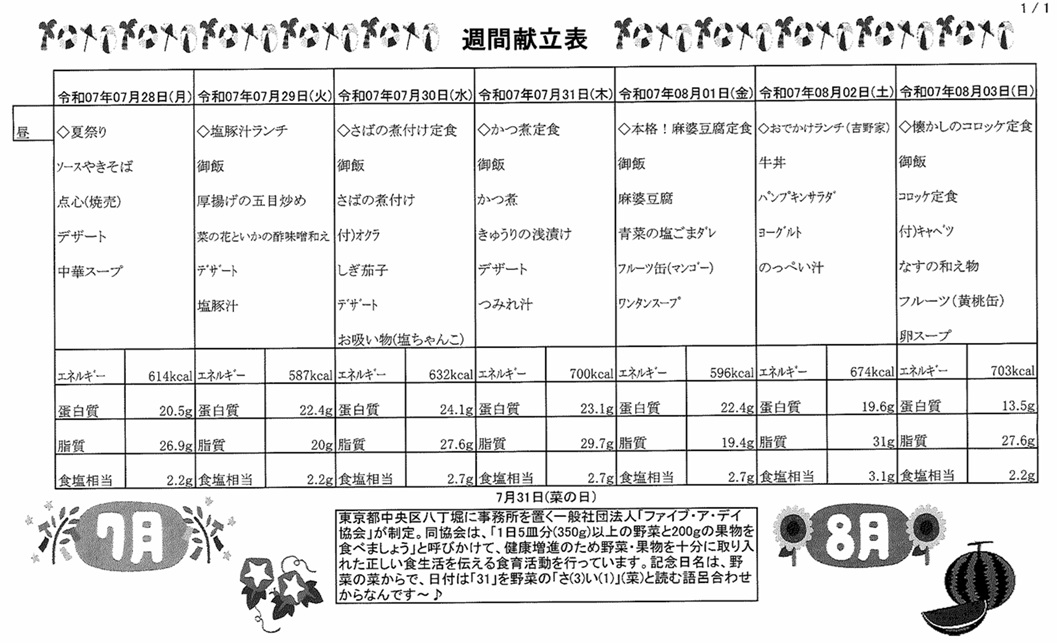 1 / 1
週間献立表
令和07年07月28日(月) 令和07年07月29日(火) 令和07年07月30日(水) 令和07年07月31日(木) 令和07年08月01日(金) 令和07年08月02日(土) 令和07年08月03日(日)
昼 ◇夏祭り ◇塩豚汁ランチ ◇さばの煮付け定食 ◇かつ煮定食 ◇本格！麻婆豆腐定食 ◇おでかけランチ(吉野家) ◇懐かしのコロッケ定食
ソースやきそば 御飯 御飯 御飯 御飯 牛丼 御飯
点心(焼売) 厚揚げの五目炒め さばの煮付け かつ煮 麻婆豆腐 パンプキンサラダ コロッケ定食
デザート 菜の花といかの酢味噌和え 付)オクラ きゅうりの浅漬け 青菜の塩ごまダレ ヨーグルト 付)キャベツ
中華スープ デザート しぎ茄子 デザート フルーツ缶(マンゴー) のっぺい汁 なすの和え物
塩豚汁 デザート つみれ汁 ワンタンスープ フルーツ（黄桃缶）
お吸い物(塩ちゃんこ) 卵スープ
エネルギー 614kcal エネルギー 587kcal エネルギー 632kcal エネルギー 700kcal エネルギー 596kcal エネルギー 674kcal エネルギー 703kcal
蛋白質 20.5g 蛋白質 22.4g 蛋白質 24.1g 蛋白質 23.1g 蛋白質 22.4g 蛋白質 19.6g 蛋白質 13.5g
脂質 26.9g 脂質 20g 脂質 27.6g 脂質 29.7g 脂質 19.4g 脂質 31g 脂質 27.6g
食塩相当 2.2g 食塩相当 2.2g 食塩相当 2.7g 食塩相当 2.7g 食塩相当 2.7g 食塩相当 3.1g 食塩相当 2.2g
7月31日(菜の日)
7月
東京都中央区八丁堀に事務所を置く一般社団法人「ファイブ・ア・デイ
協会」が制定。同協会は、「1日5皿分(350g)以上の野菜と200gの果物を
食べましょう」と呼びかけて、健康増進のため野菜・果物を十分に取り入
れた正しい食生活を伝える食育活動を行っています。記念日名は、野
菜の菜からで、日付は「31」を野菜の「さ(3)い(1)」(菜)と読む語呂合わせ
からなんです～♪
8月